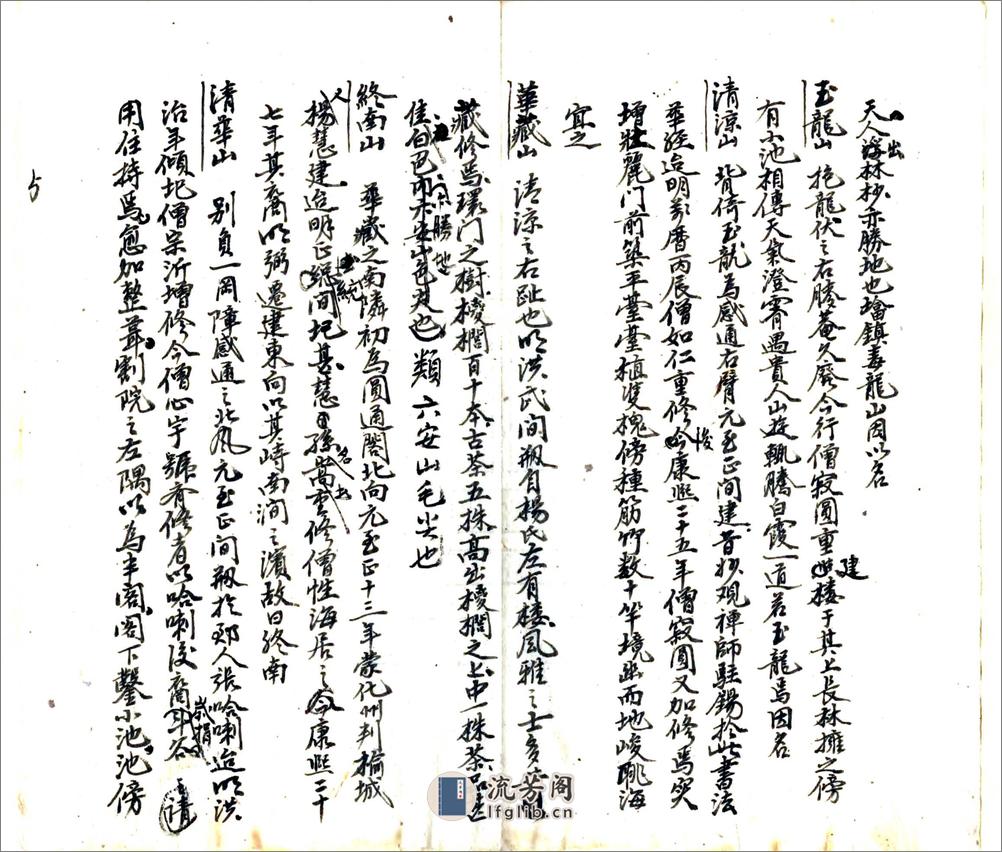 天人出深林抄亦勝地也塔鎮毒龍山因以名
玉龍山 抱龍伏之右勝菴久廢今行僧寂圓重建樓于其上長林擁之傍
有小池相傳天氣澄霽遇貴人山遊輒騰白霞一道若玉龍焉因名
清涼山 背倚玉龍為感通右臂元至正間建昔妙观禅師駐錫於此書法
華經迨明萬曆丙辰僧如仁重修後康熙二十五年僧寂圓又加修焉突
增壯麗門前築平臺臺植雙槐傍種筋竹数十竿境幽而地峻眺海
宜之
華藏山 清涼之右趾也明洪武間剏自楊氏左有楼風雅之士多
藏修焉環門之樹椶櫚百十本古茶五株高出椶櫚之上中一株茶
佳 勝地也類六安山毛尖也
終南山 華藏之南隣初為圓通閣北向元至正十三年蒙化州判榆城
楊慧建迨明正統間圮甚慧孫嵩重修僧性海居之今康熙二十
七年其裔以弼遷建東向以其峙南澗之濱故曰終南
清華山 別負一岡障感通之北风元至正間剏於郡人張哈喇迨明洪
治年傾圮僧宗沂增修今僧心宇號斉修者以哈喇後裔耳谷請
用住持焉愈加整葺割院之左隅以為丰閣閣下鑿小池池傍
流芳阁
lfglib.cn